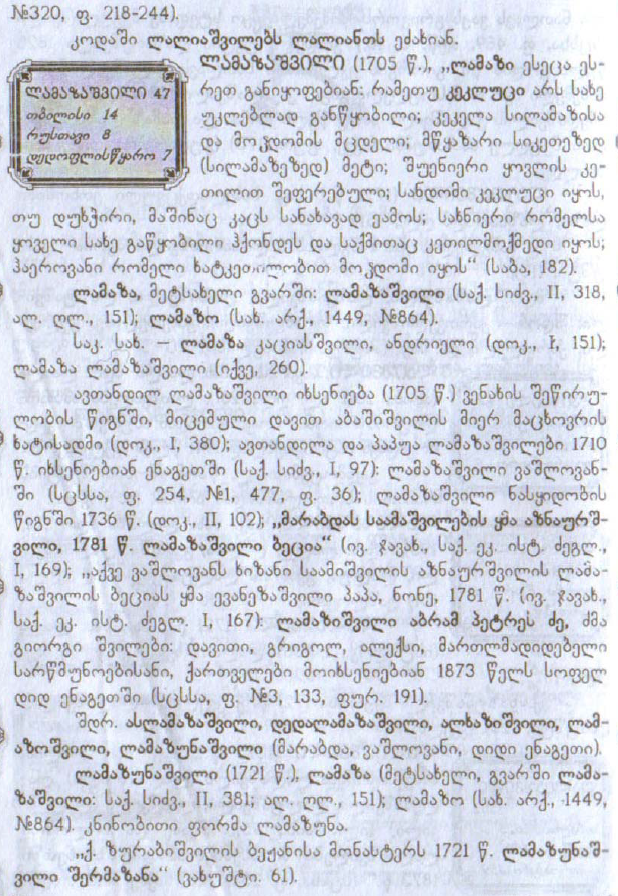 №320, ფ. 218-244).
კოდაში ლალიაშვილებს ლალიანთს ეძახიან.
ლამაზაშვილი 47
თბილისი 14
რუსთავი 8
დედოფლისწყარო 7
ᲚᲐᲛᲐᲖᲐᲨᲕᲘᲚᲘ (1705 წ.), „ლამაზი ესეცა ეს-
რეთ განიყოფებიან: რამეთუ კეკლუცი არს სახე
უკლებლად განწყობილი; კეკელა სილამაზისა
და მოკდომის მცდელი; მწყაზარი სიკეთეზედ
(სილამაზეზედ) მეტი; შუენიერი ყოვლის კე-
თილით შეფერებული; სანდომი კეკლუცი იყოს,
თუ დუხჭირი, მაშინაც კაცს სანახავად ეამოს; სახნიერი რომელსა
ყოველი სახე გაწყობილი ჰქონდეს და საქმითაც კეთილმოქმედი იყოს;
ჰაეროვანი რომელი ხატკეთილობით მოკდომი იყოს“ (საბა, 182).
ლამაზა, მეტსახელი გვარში: ლამაზაშვილი (საქ. სიძვ., II, 318,
ალ. ღლ., 151); ლამაზო (სახ. არქ., 1449, №864).
საკ. სახ. — ლამაზა კაციასშვილი, ანდრიელი (დოკ., I, 151);
ლამაზა ლამაზაშვილი (იქვე, 260).
ავთანდილ ლამაზაშვილი იხსენიება (1705 წ.) ვენახის შეწირუ-
ლობის წიგნში, მიცემული დავით აბაშიშვილის მიერ მაცხოვრის
ხატისადმი (დოკ., I, 380); ავთანდილა და პაპუა ლამაზაშვილები 1710
წ. იხსენიებიან ენაგეთში (საქ. სიძვ., I, 97): ლამაზაშვილი ვაშლოვან-
ში (სცსსა, ფ. 254, №1, 477, ფ. 36); ლამაზაშვილი ნასყიდობის
წიგნში 1736 წ. (დოკ., II, 102); „მარაბდას საამაშვილების ყმა აზნაურშ-
ვილი, 1781 წ. ლამაზაშვილი ბეცია“ (ივ. ჯავახ., საქ. ეკ. ისტ. ძეგლ.,
I, 169); „აქვე ვაშლოვანს ხიზანი საამიშვილის აზნაურშვილის ლამა-
ზაშვილის ბეციას ყმა ევანეზაშვილი პაპა, ნონე, 1781 წ. (ივ. ჯავახ.,
საქ. ეკ. ისტ. ძეგლ. I, 167): ლამაზიშვილი აბრამ პეტრეს ძე, ძმა
გიორგი შვილები: დავითი, გრიგოლ, ალექსი, მართლმადიდებელი
სარწმუნოებისანი, ქართველები მოიხსენიებიან 1873 წელს სოფელ
დიდ ენაგეთში (სცსსა, ფ. №3, 133, ფურ. 191).
შდრ. ასლამაზაშვილი, დედალამაზაშვილი, ალხაზიშვილი, ლამ-
აზოშვილი, ლამაზუნაშვილი (მარაბდა, ვაშლოვანი, დიდი ენაგეთი).
ლამაზუნაშვილი (1721 წ.), ლამაზა (მეტსახელი, გვარში ლამა-
ზაშვილი: საქ. სიძვ., II, 381; ალ. ღლ., 151); ლამაზო (სახ. არქ., 1449,
№864). კნინობითი ფორმა ლამაზუნა.
„ქ. ზურაბიშვილის ბეჟანისა მონასტერს 1721 წ. ლამაზუნაშ-
ვილი შერმაზანა“ (ვახუშტი. 61).